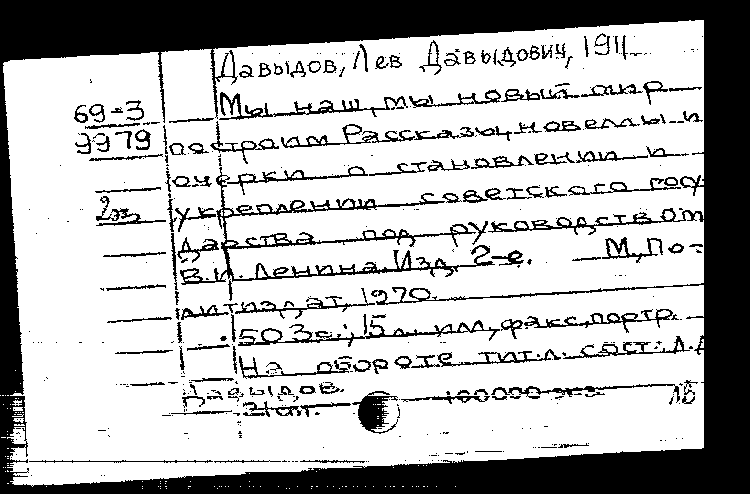 Давыдов, Лев Давыдович, 1911
69-3 Мы наш, мы новый мир
9979 построим Рассказы, новеллы и
очерки о становлении и
2эк укреплении советского госу-
дарства под руководством
В.И. Ленина. Изд. 2-е. М, По-
литиздат, 1970.
503с.; 15 л. илл, факс, портр.
На обороте тит.л. сост.: Л.Д
Давыдов.
21 сит. 100000 экз ЛВ